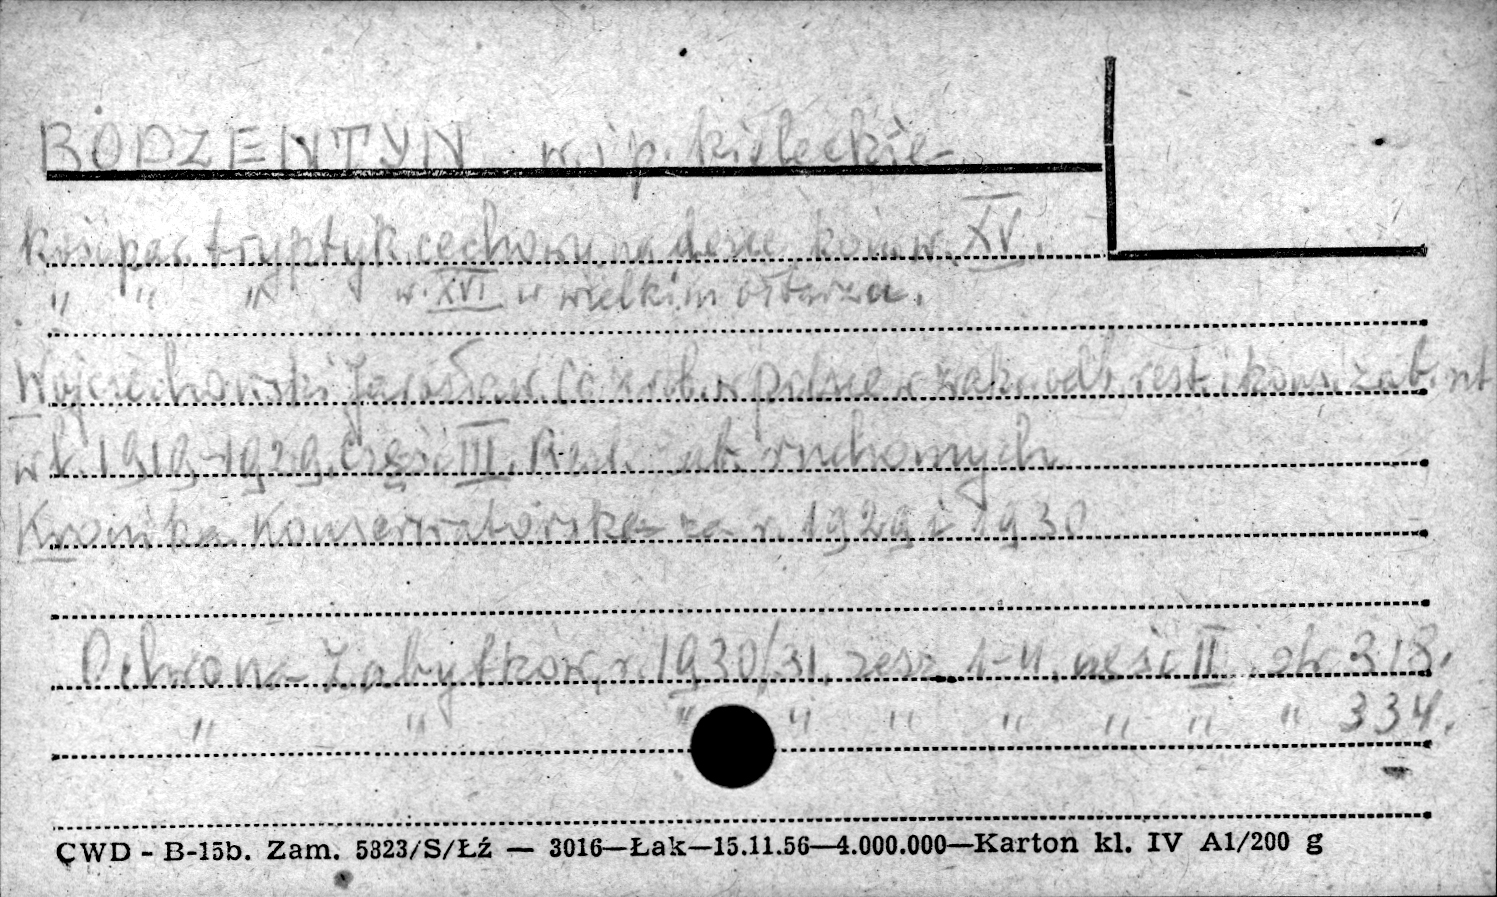 BODZENTYN w. i p. kieleckie
kość. par. tryptyk cechowy na desce kon. w. XV.
" " " w. XVI w wielkim ołtarzu.
Wojciechowski Jarosław. Co zrob. w Polsce w zak. odb. rest. i kons. zab. szt
w l. 1919-1929. Część III. Rest. zab. ruchomych
Kronika Konserwatorska za r. 1929 i 1930
Ochrona Zabytków, r. 1930/31, zesz. 1-4, część II. str. 318.
" " " " " " " " " 334.
CWD - B-15b. Zam. 5823/S/Łź — 3016—Łak—15.11.56—4.000.000—Karton kl. IV A1/200 g